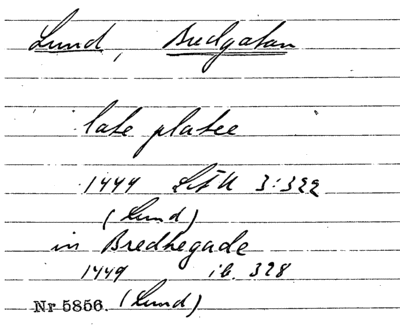 Lund, Bredgatan
late platee
1444 LÄU 3:322
(Lund)
in Bredhegade
1449 ib. 328
Nr 5856. (Lund)